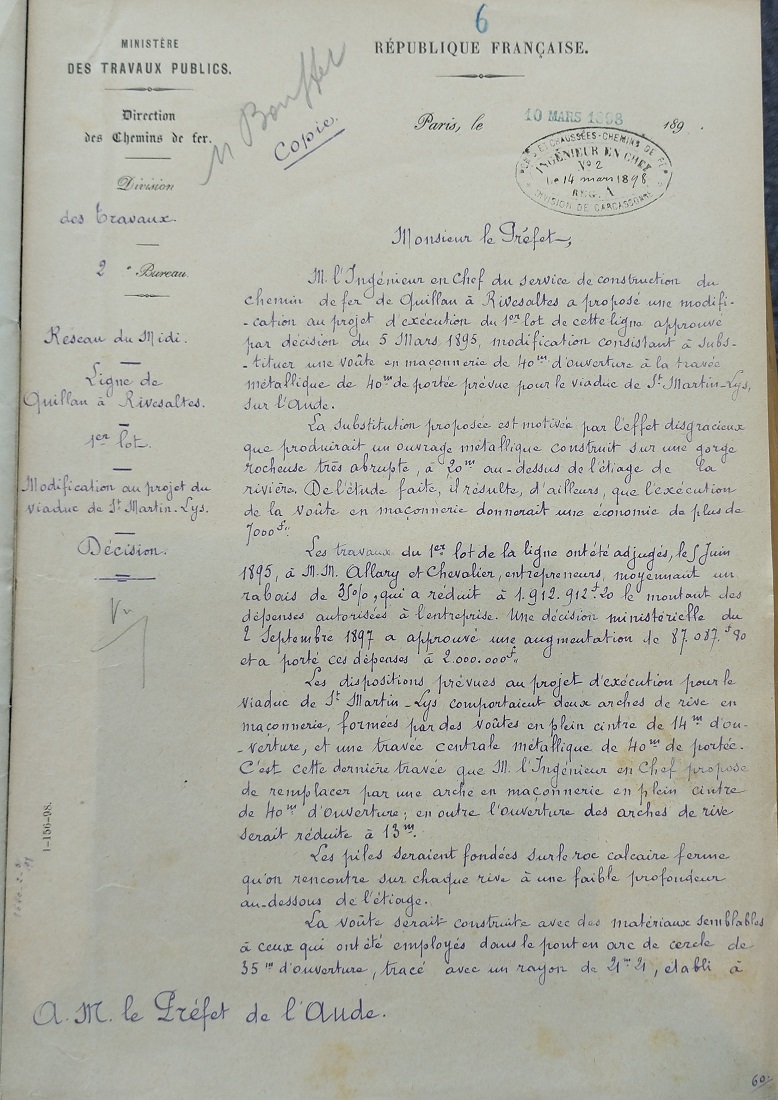 6
MINISTÈRE
DES TRAVAUX PUBLICS.
RÉPUBLIQUE FRANÇAISE.
Direction
des Chemins de fer.
M Bouffet
Copie
Paris, le 10 MARS 1898 189 .
PONTS ET CHAUSSÉES-CHEMINS DE FER
INGÉNIEUR EN CHEF
N° 2
Le 14 mars 1898
REG. 1
DIVISION DE CARCASSONNE
Division
des Travaux.
2e Bureau.
Réseau du Midi.
Ligne de
Quillan à Rivesaltes.
1er lot.
Modification au projet du
viaduc de St Martin-Lys.
Décision.
Monsieur le Préfet,
M. l'Ingénieur en Chef du service de construction du
chemin de fer de Quillan à Rivesaltes a proposé une modifi-
-cation au projet d'exécution du 1er lot de cette ligne approuvé
par décision du 5 Mars 1895, modification consistant à subs-
-tituer une voûte en maçonnerie de 40m d'ouverture à la travée
métallique de 40m de portée prévue pour le viaduc de St Martin-Lys,
sur l'Aude.
La substitution proposée est motivée par l'effet disgracieux
que produirait un ouvrage métallique construit sur une gorge
rocheuse très abrupte, à 20m au-dessus de l'étiage de la
rivière. De l'étude faite, il résulte, d'ailleurs, que l'exécution
de la voûte en maçonnerie donnerait une économie de plus de
7000f.
Les travaux du 1er lot de la ligne ont été adjugés, le 5 Juin
1895, à M.M. Allary et Chevalier, entrepreneurs, moyennant un
rabais de 35%, qui a réduit à 1.912.912f20 le montant des
dépenses autorisées à l'entreprise. Une décision ministérielle du
2 Septembre 1897 a approuvé une augmentation de 87.087f80
et a porté ces dépenses à 2.000.000f.
Les dispositions prévues au projet d'exécution pour le
viaduc de St Martin-Lys comportaient deux arches de rive en
maçonnerie, formées par des voûtes en plein cintre de 14m d'ou-
-verture, et une travée centrale métallique de 40m de portée.
C'est cette dernière travée que M. l'Ingénieur en Chef propose
de remplacer par une arche en maçonnerie en plein cintre
de 40m d'ouverture; en outre l'ouverture des arches de rive
serait réduite à 13m.
Les piles seraient fondées sur le roc calcaire ferme
qu'on rencontre sur chaque rive à une faible profondeur
au-dessous de l'étiage.
La voûte serait construite avec des matériaux semblables
à ceux qui ont été employés dans le pont en arc de cercle de
35m d'ouverture, tracé avec un rayon de 21m21, établi à
1-156-98.
A. M. le Préfet de l'Aude.
60.